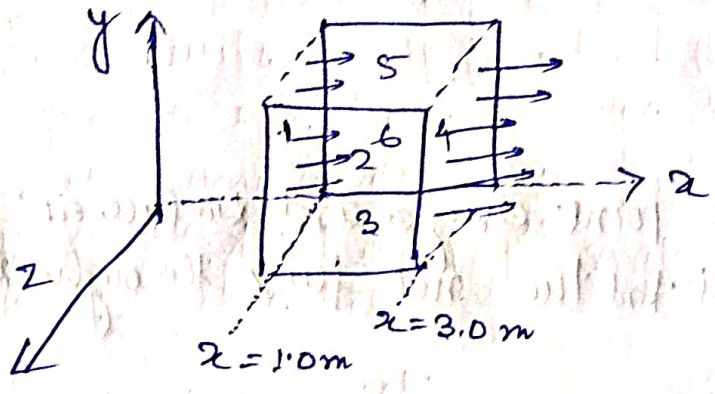 y
5
1
6
4
2
x
3
z
x = 1.0m
x = 3.0 m